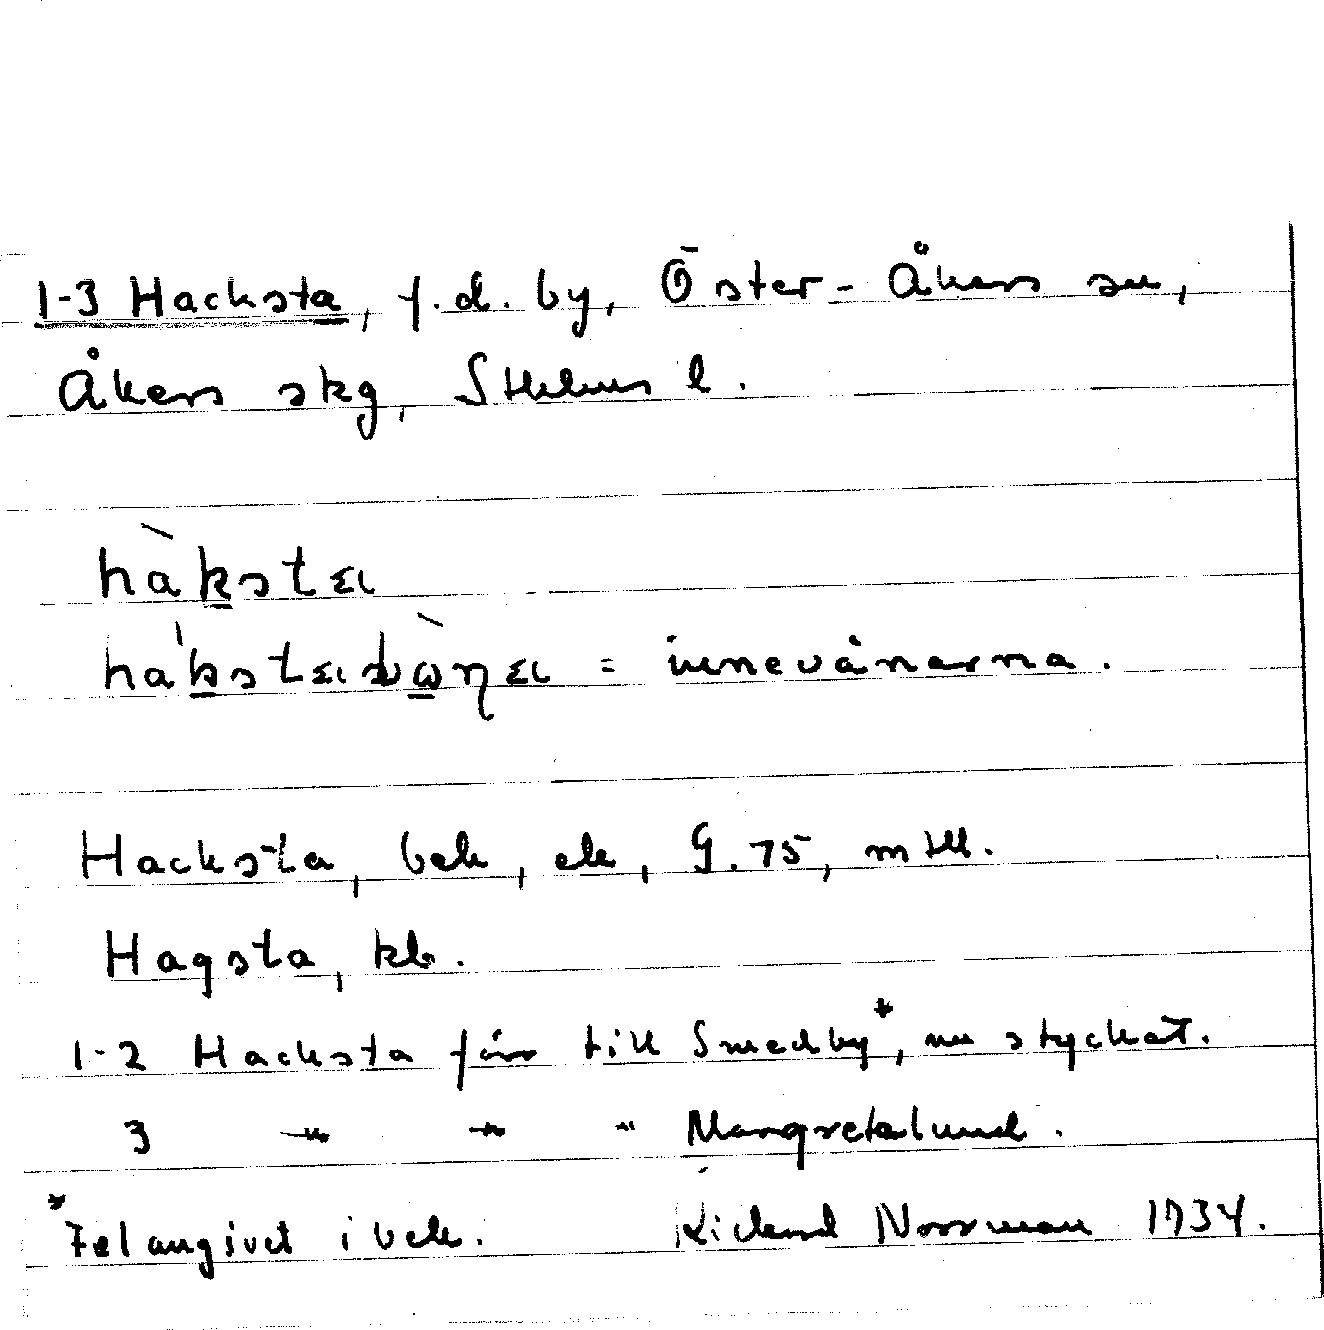 1-3 Hacksta, f.d. by, Öster-Åkers sn,
Åkers skg, Sthlms l.
hàksta
hákstabòηa = innevånarna.
Hacksta, bek, ek, G. 75, mtll.
Hagsta, kb.
1-2 Hacksta förr till Smedby*, nu styckat.
3 -"- -"- " Margretelund.
*Fel angivet i bek. Rickard Norrman 1934.